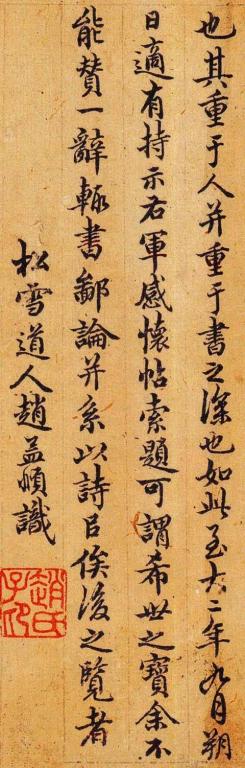 也其重于人并重于书之深也如此至大二年九月朔
日適有持示右軍感懷帖索題可謂希世之寶余不
能賛一辭輙書鄙論并系以詩㠯俟後之覽者
松雪道人趙孟頫識
趙氏子昂